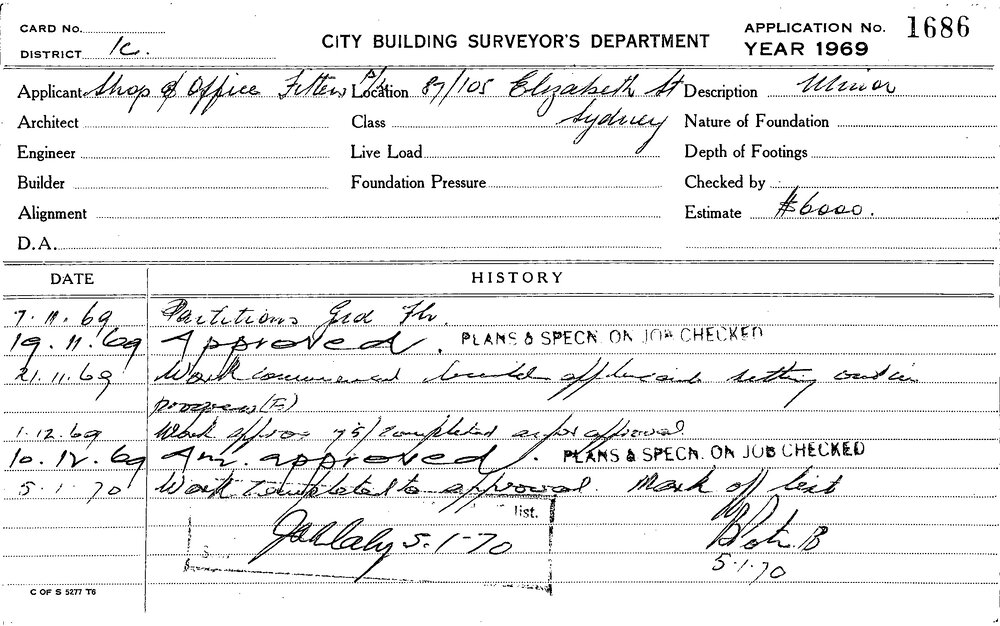 CARD No.
DISTRICT 1c.
CITY BUILDING SURVEYOR'S DEPARTMENT
APPLICATION No. 1686
YEAR 1969
Applicant Shop & Office Fitters P/L Location 87/105 Elizabeth St Description Minor
Architect Class Sydney Nature of Foundation
Engineer Live Load Depth of Footings
Builder Foundation Pressure Checked by
Alignment Estimate $6000.
D.A.
DATE HISTORY
7.11.69 Partitions Grd Flr.
19.11.69 Approved. PLANS & SPECN. ON JOB CHECKED
21.11.69 Work commenced setting out in
progress (F)
1.12.69 Work approx 75% completed as per approval
10.12.69 Am. approved. PLANS & SPECN. ON JOB CHECKED
5.1.70 Work completed to approval. Mark off list
list.
5.1-70
5.1.70
C OF S 5277 T6